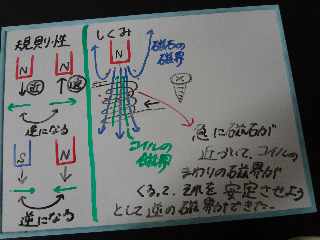 規則性
N
N
近
遠
逆になる
S
N
逆になる
しくみ
N
磁石の
磁界
コイルの
磁界
急に磁石が
近づいて、コイルの
まわりの磁界が
くるって、それを安定させよう
として逆の磁界ができた。